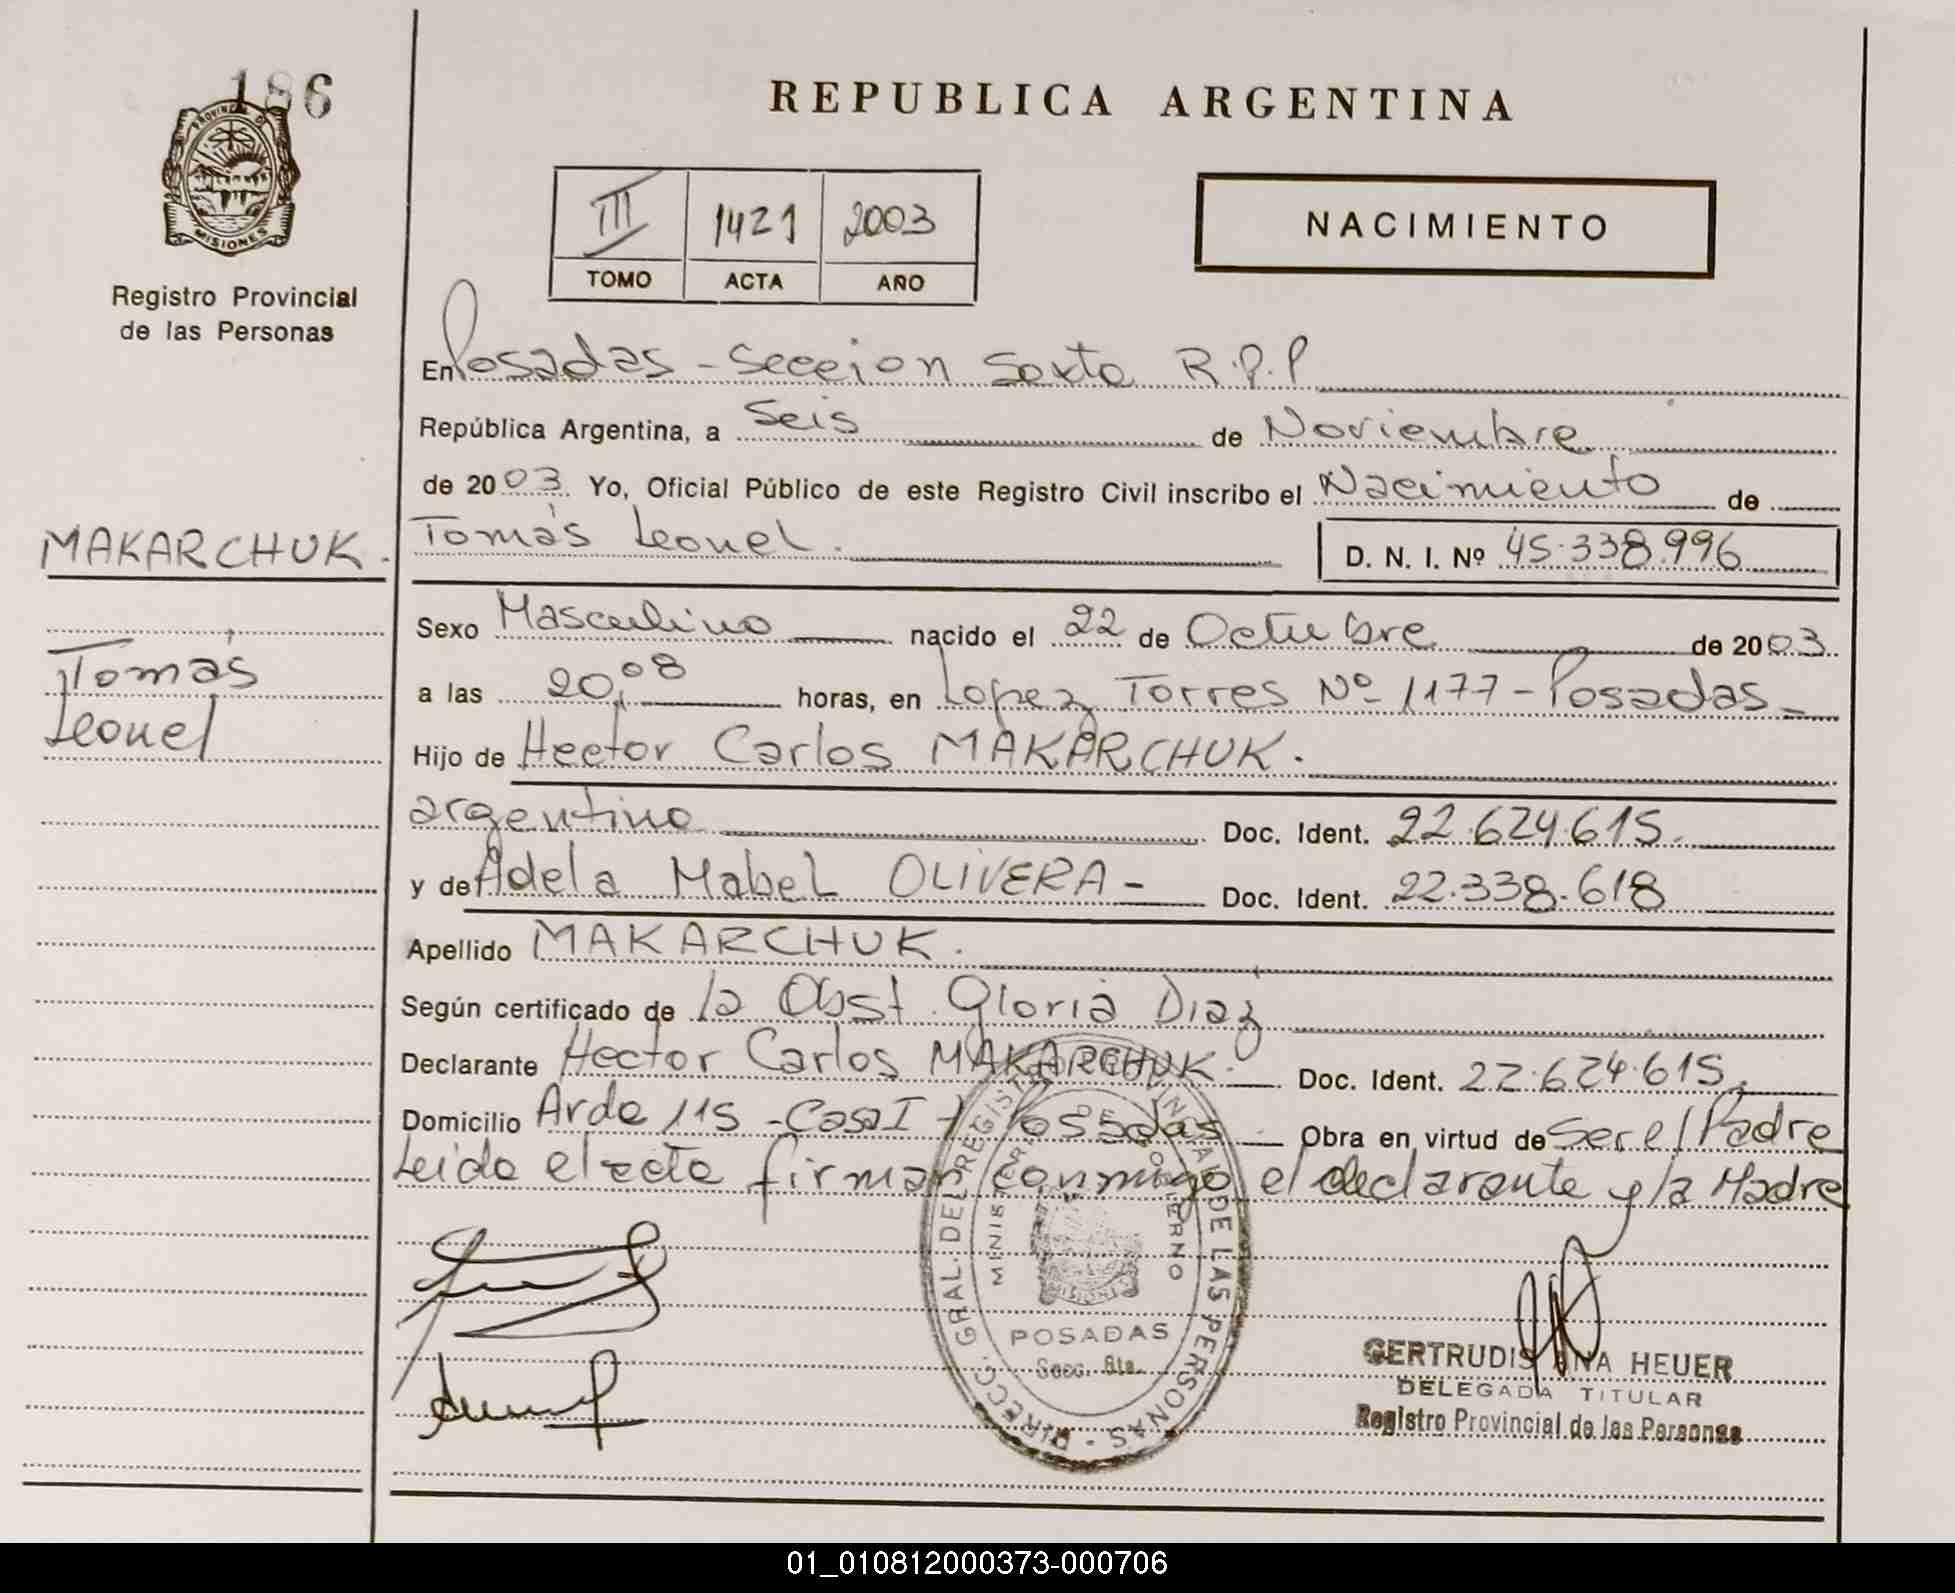 186
PROVINCIA D
MISIONES
Registro Provincial
de las Personas
REPUBLICA ARGENTINA
III 1421 2003
TOMO ACTA AÑO
NACIMIENTO
En Posadas - Seccion Sexta R.P.P
República Argentina, a Seis de Noviembre
de 2003. Yo, Oficial Público de este Registro Civil inscribo el Nacimiento de
Tomás Leonel. D. N. I. Nº 45.338.996
MAKARCHUK.
Tomás
Leonel
Sexo Masculino nacido el 22 de Octubre de 2003.
a las 20,08 horas, en Lopez Torres Nº 1177 - Posadas -
Hijo de Hector Carlos MAKARCHUK.
argentino Doc. Ident. 22.624.615.
y de Adela Mabel OLIVERA - Doc. Ident. 22.338.618
Apellido MAKARCHUK.
Según certificado de la Obst. Gloria Diaz
Declarante Hector Carlos MAKARCHUK. Doc. Ident. 22.624.615.
Domicilio Arda 115 - Casa 1 - Posadas Obra en virtud de Ser el Padre
Leida el acta firman conmigo el declarante y la Madre
DIRECC. GRAL. DEL REGIST PROVINCIAL DE LAS PERSONAS
MINISTERIO DE GOBIERNO
MISIONES
POSADAS
Secc. 6ta.
GERTRUDIS ANA HEUER
DELEGADA TITULAR
Registro Provincial de las Personas
01_010812000373-000706